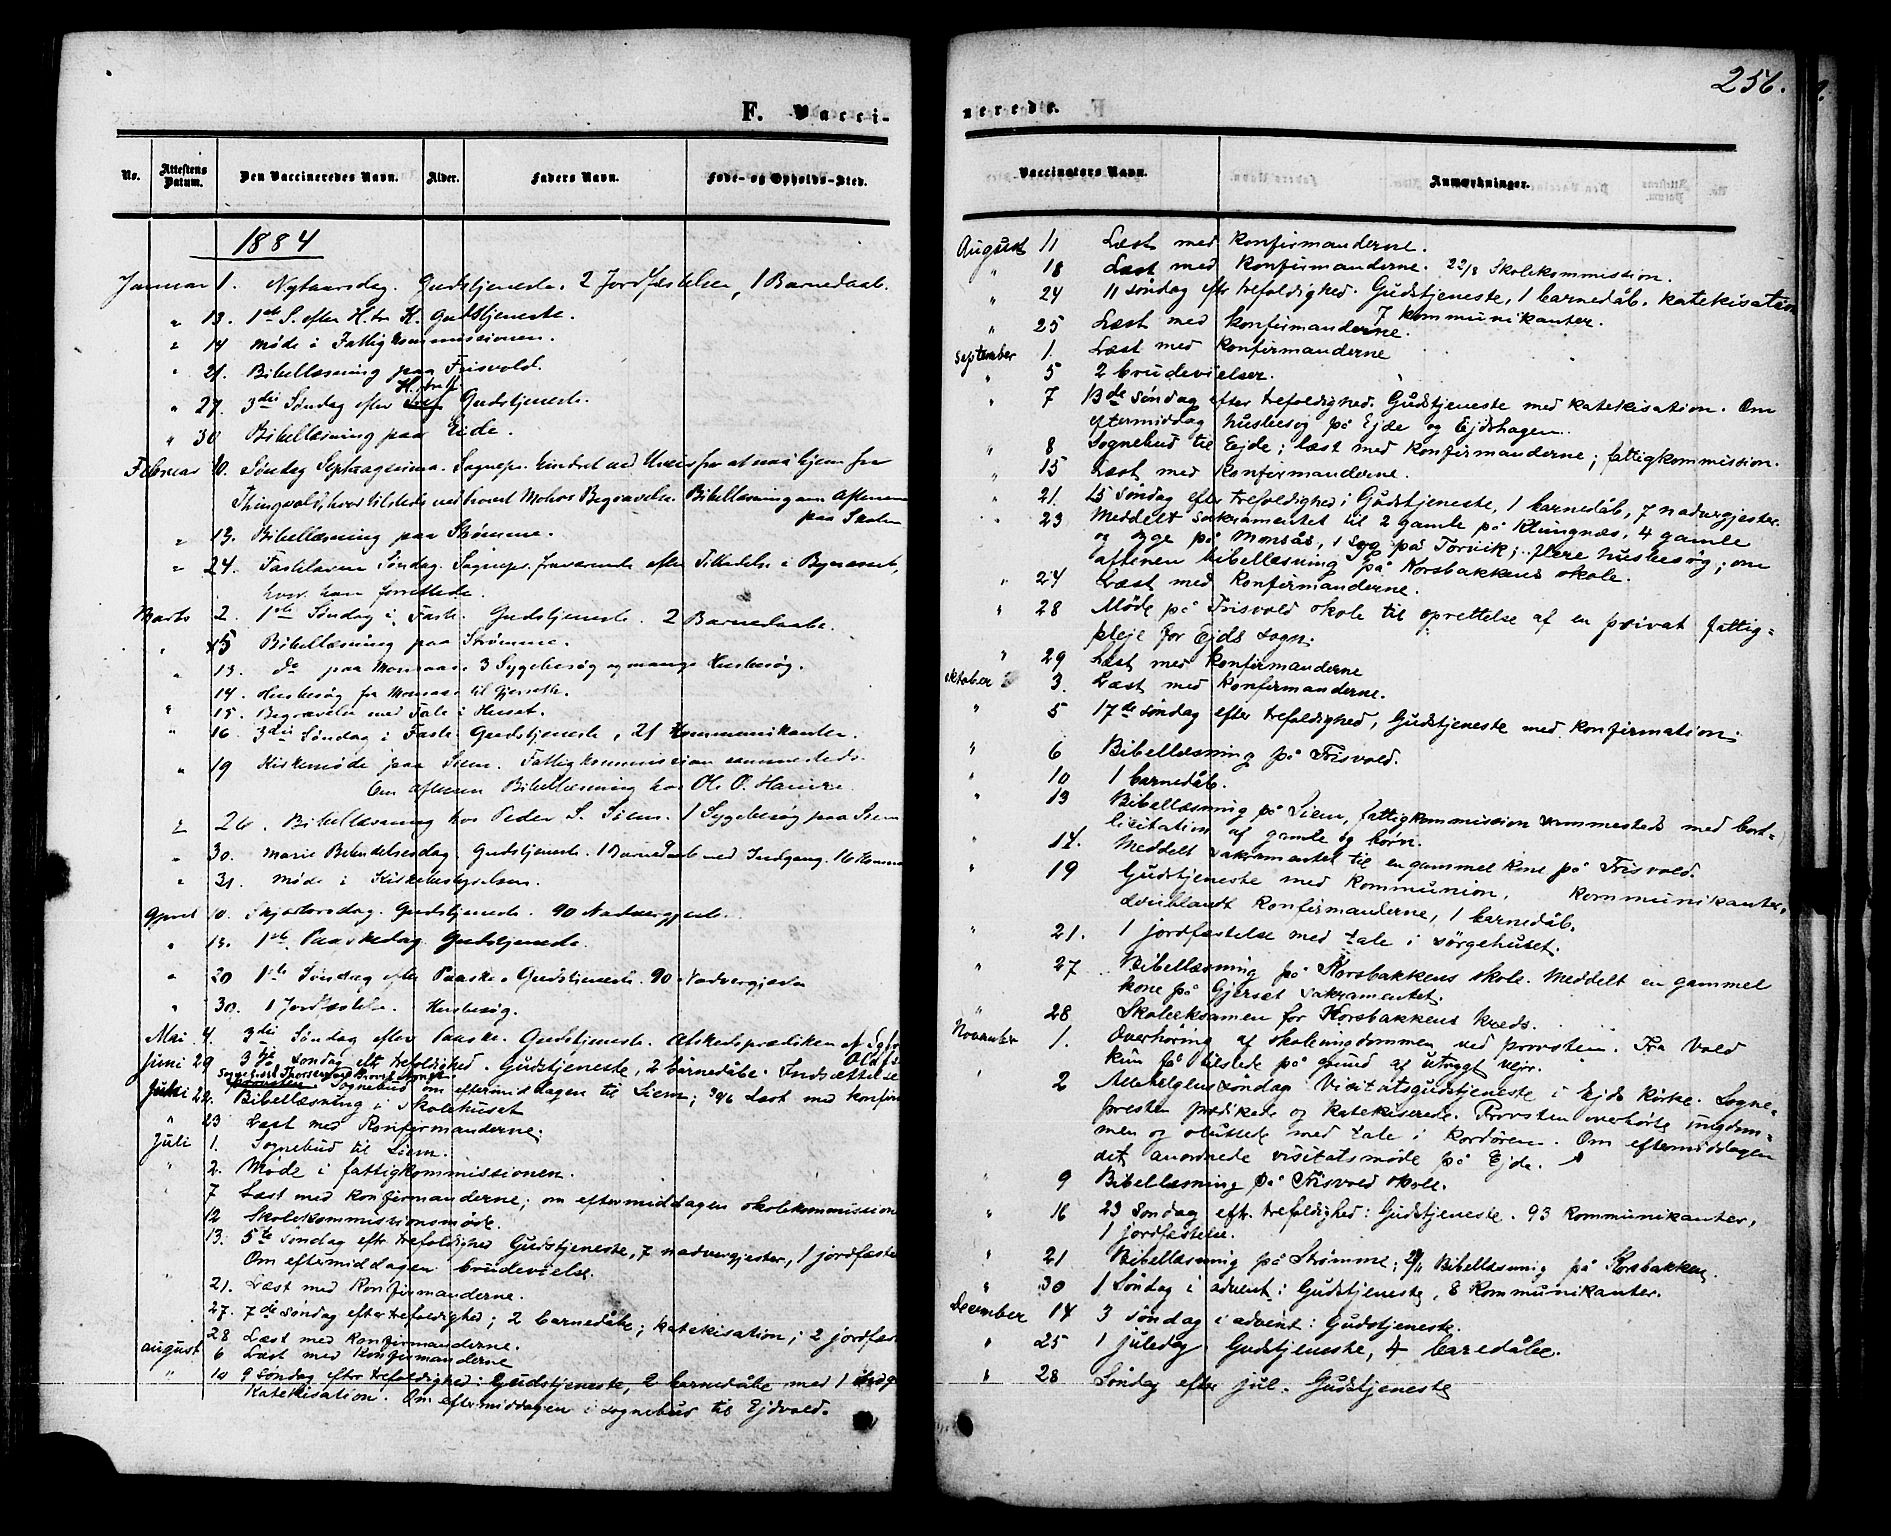 F. Vacci-
No. Attestens Datum. Den Vaccineredes Navn. Alder. Faders Navn. Føde- og Opholds-Sted.
1884
Januar 1. Nytaarsdag. Gudstjeneste. 2 Jordfæstelser, 1 Barnedaab.
" 13. 1ste S. efter H. tre K. Gudstjeneste.
" 14 Møde i Fattigkommissionen.
" 21. Bibellæsning paa Frisvold.
" 27. 3die Søndag efter H. tre K. Gudstjeneste.
" 30 Bibellæsning paa Eide.
Februar 10. Søndag Septuagesima. Sognepr. hindret ved Uveir fra at naa hjem fra
Thingvold, hvor tilstede ved Mohrs Begravelse. Bibellæsning om Aftenen
paa Skolen
" 13. Bibellæsning paa Strømme.
" 24. Fastelavns Søndag. Sognepr. fraværende efter Tilladelse i Bynæsset,
hvor han forrettede.
Marts 2. 1ste Søndag i Faste. Gudstjeneste. 2 Barnedaabe.
" 5 Bibellæsning paa Strømme.
" 13. do paa Monsaas. 3 Sygebesøg og mange Husbesøg.
14. Husbesøg fra Monsaas til Gjerseth.
" 15. Begravelse med Tale i Huset.
" 16. 3die Søndag i Faste. Gudstjeneste, 21 Kommunikanter.
" 19 Kirkemøde paa Siem. Fattigkommission sammesteds.
Om Aftenen Bibellæsning hos Ole O.
" 26. Bibellæsning hos Peder S. Siem. 1 Sygebesøg paa Siem
" 30. Mariæ Bebudelsesdag. Gudstjeneste. 1 Barnedaab med Indgang. 16 Komm
" 31. Møde i Kirkebestyrelsen.
April 10. Skjærtorsdag. Gudstjeneste. 90 Nadvergjester.
" 13. 1ste Paaskedag. Gudstjeneste.
" 20 1ste Søndag efter Paaske. Gudstjeneste. 90 Nadvergjester
" 30. 1 Jordfæstelse. Husbesøg.
Mai 4. 3die Søndag efter Paaske. Gudstjeneste. Afskedsprædiken af Sgpr.
Juni 29 3die søndag eftr trefoldighed. Gudstjeneste, 2 barnedåbe. Indsættelse
provsten Sognebud om eftermiddagen til Siem; 30/6 Læst med konfir
Juli 22. Bibellæsning i skolehuset
" 23 Læst med Konfirmanderne.
Juli 1. Sognebud til Siem.
" 2. Møde i fattigkommissionen.
7 Læst med konfirmanderne; om eftermiddagen skolekommission
12 Skolekommissionsmøde.
13. 5te søndag eftr trefoldighed Gudstjeneste, 7 nadvergjester, 1 jordfæste
Om eftermiddagen brudevielse.
" 21. Læst med Konfirmanderne.
27. 7de søndag efter trefoldighed; 2 barnedåbe; katekisation; 2 jordfæs
28 Læst med konfirmanderne.
august 6 Læst med konfirmanderne
" 10 9 søndag eftr trefoldighed: Gudstjeneste, 2 barnedåbe med 1 indg
Katekisation. Om eftermiddagen i sognebud til Ejdvold.
256.
nerede.
Vaccinators Navn. Anmærkninger.
August 11 Læst med konfirmanderne.
" 18 Læst med konfirmanderne. 22/8 Skolekommission.
" 24 11 søndag eftr trefoldighed. Gudstjeneste, 1 barnedåb, katekisation
7 kommunikanter.
" 25 Læst med konfirmanderne.
September 1. Læst med konfirmanderne
" 5 2 brudevielser.
" 7 13de søndag efter trefoldighed. Gudstjeneste med katekisation. Om
eftermiddag husbesøg på Ejde og Ejdshagen.
" 8 Sognebud til Ejde; læst med konfirmanderne; fattigkommission.
" 15 Læst med konfirmanderne.
" 21. 15 søndag efter trefoldighed; Gudstjeneste, 1 barnedåb, 7 nadvergjester.
" 23 Meddelt sakramentet til 2 gamle på Klungnæs, 4 gamle
og syge på Monsås, 1 syg på Torvik; flere husbesøg; om
aftenen bibellæsning på Korsbakkens skole.
" 24 Læst med konfirmanderne.
" 28 Møde på Frisvold skole til oprettelse af en privat fattig=
pleje for Ejds sogn.
" 29 Læst med konfirmanderne
oktober 3. Læst med konfirmanderne.
" 5 17de søndag efter trefoldighed, Gudstjeneste med konfirmation.
" 6 Bibellæsning på Frisvold.
" 10 1 barnedåb.
" 13 Bibellæsning på Siem, fattigkommission sammesteds med bort-
licitation af gamle og børn.
" 14. Meddelt sakramentet til en gammel kone på Frisvold.
" 19 Gudstjeneste med kommunion, kommunikanter,
deriblandt konfirmanderne, 1 barnedåb.
" 21. 1 jordfæstelse med tale i sørgehuset.
" 27 Bibellæsning på Korsbakkens skole. Meddelt en gammel
kone på Gjerset sakramentet.
" 28 Skoleeksamen for Korsbakkens kreds.
November 1. Overhøring af skoleungdommen ved provsten. Fra Vold
kun få tilstede på grund af utrygt vejr.
" 2 Allehelgenssøndag. Visitatsgudstjeneste i Ejds kirke. Sogne=
presten prædikede og katekiserede. Provsten overhørte ungdom=
men og sluttede med tale i kordøren. Om eftermiddagen
det anordnede visitatsmøde på Ejde.
" 9 Bibellæsning på Frisvold skole.
" 16 23 søndag eftr. trefoldighed: Gudstjeneste. 93 kommunikanter,
1 jordfæstelse.
" 21 Bibellæsning på Strømme; 29/11 Bibellæsning på Korsbakken.
" 30 1 Søndag i advent: Gudstjeneste, 8 Kommunikanter.
December 14 3 søndag i advent: Gudstjeneste.
" 25 1 juledag. Gudstjeneste, 4 barnedåbe.
" 28 Søndag efter jul. Gudstjeneste